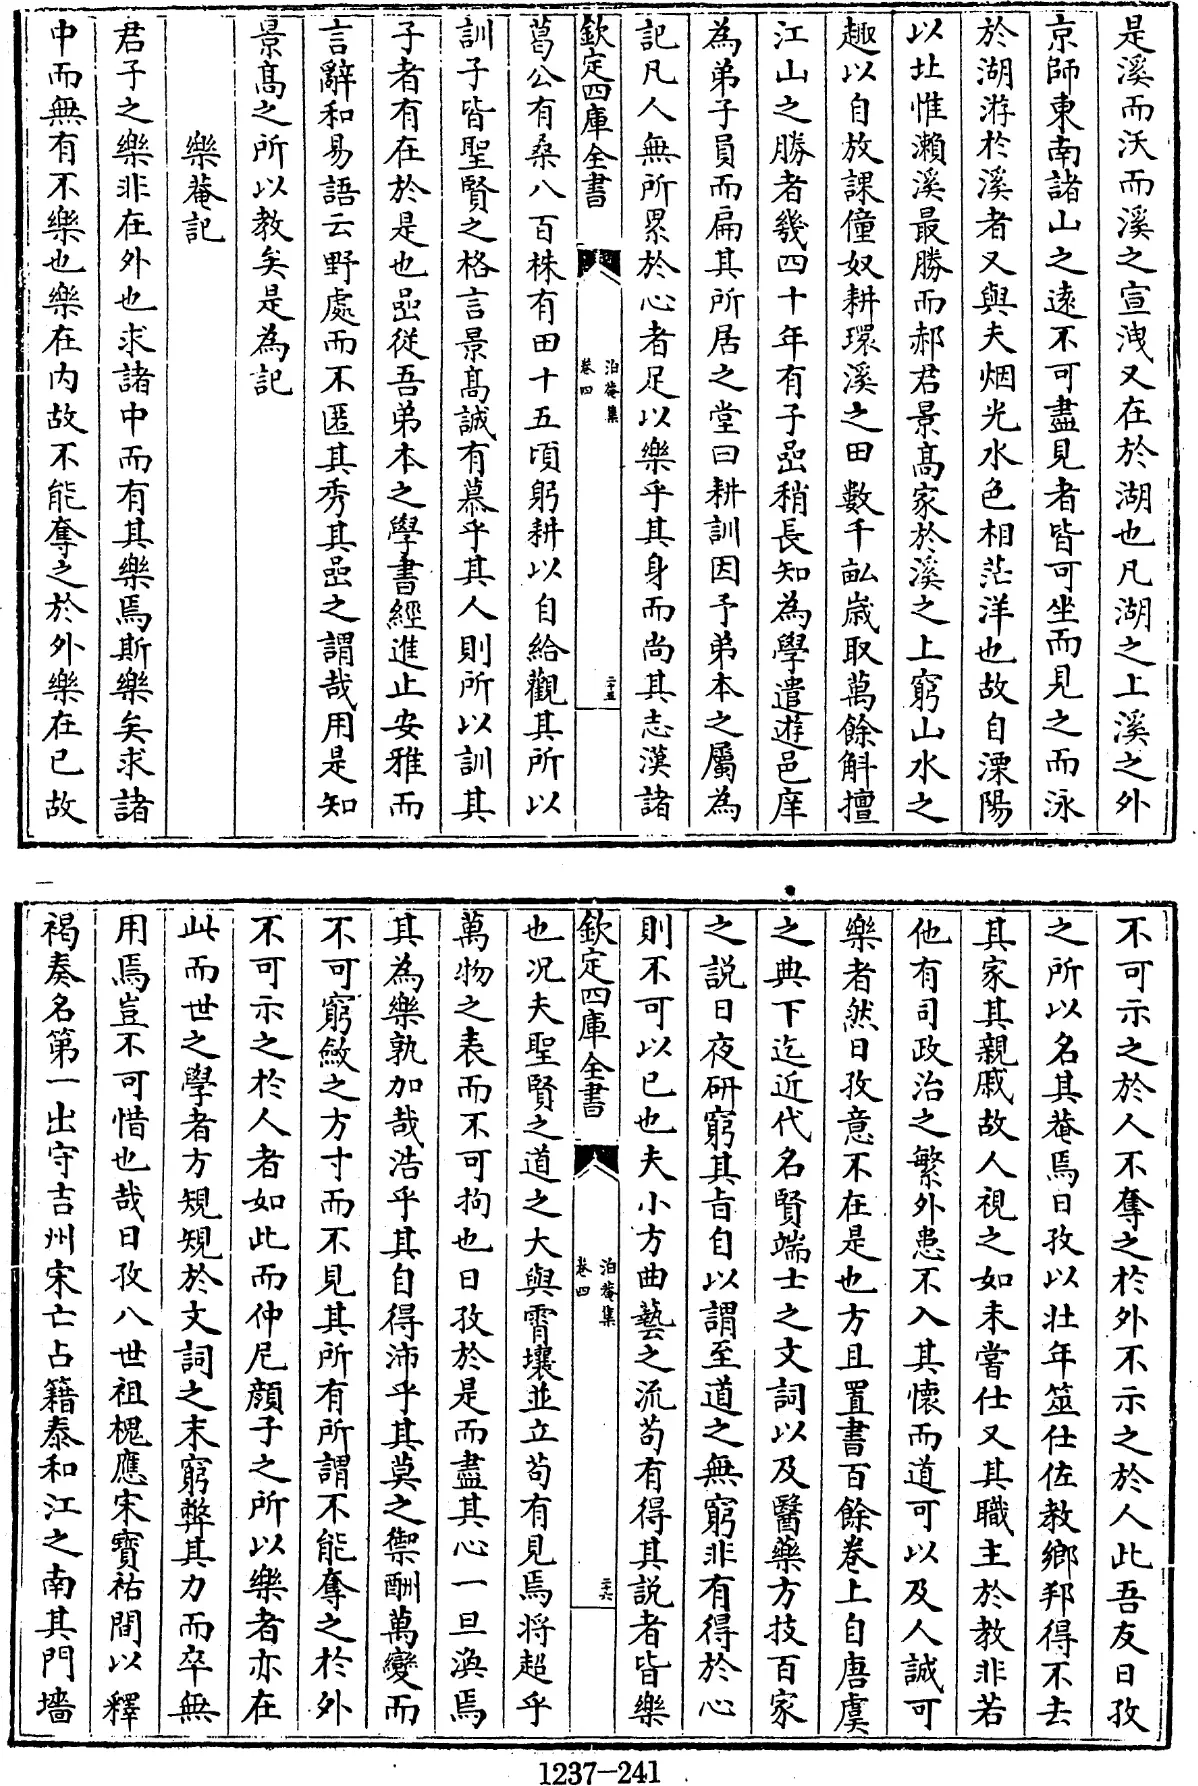 是溪而沃而溪之宣洩又在於湖也凡湖之上溪之外
京師東南諸山之遠不可盡見者皆可坐而見之而泳
於湖游於溪者又與夫烟光水色相茫洋也故自溧陽
以北惟瀨溪最勝而郝君景高家於溪之上窮山水之
趣以自放課僮奴耕環溪之田數千畝歳取萬餘斛擅
江山之勝者幾四十年有子嵒稍長知為學遣遊邑庠
為弟子員而扁其所居之堂曰耕訓因予弟本之屬為
記凡人無所累於心者足以樂乎其身而尚其志漢諸
欽定四庫全書
泊菴集
卷四
二十五
葛公有桑八百株有田十五頃躬耕以自給觀其所以
訓子皆聖賢之格言景高誠有慕乎其人則所以訓其
子者有在於是也嵒従吾弟本之學書經進止安雅而
言辭和易語云野處而不匿其秀其嵒之謂哉用是知
景高之所以教矣是為記
樂菴記
君子之樂非在外也求諸中而有其樂焉斯樂矣求諸
中而無有不樂也樂在内故不能奪之於外樂在己故
不可示之於人不奪之於外不示之於人此吾友日孜
之所以名其菴焉日孜以壯年筮仕佐教鄉邦得不去
其家其親戚故人視之如未嘗仕又其職主於教非若
他有司政治之繁外患不入其懷而道可以及人誠可
樂者然日孜意不在是也方且置書百餘卷上自唐虞
之典下迄近代名賢端士之文詞以及醫藥方技百家
之説日夜研窮其旨自以謂至道之無窮非有得於心
則不可以已也夫小方曲藝之流茍有得其説者皆樂
欽定四庫全書
泊菴集
卷四
二十六
也况夫聖賢之道之大與霄壤並立茍有見焉将超乎
萬物之表而不可拘也日孜於是而盡其心一旦渙焉
其為樂孰加哉浩乎其自得沛乎其莫之禦酬萬變而
不可窮斂之方寸而不見其所有所謂不能奪之於外
不可示之於人者如此而仲尼顔子之所以樂者亦在
此而世之學者方規規於文詞之末窮弊其力而卒無
用焉豈不可惜也哉日孜八世祖槐應宋寶祐間以釋
褐奏名第一出守吉州宋亡占籍泰和江之南其門墻
1237-241